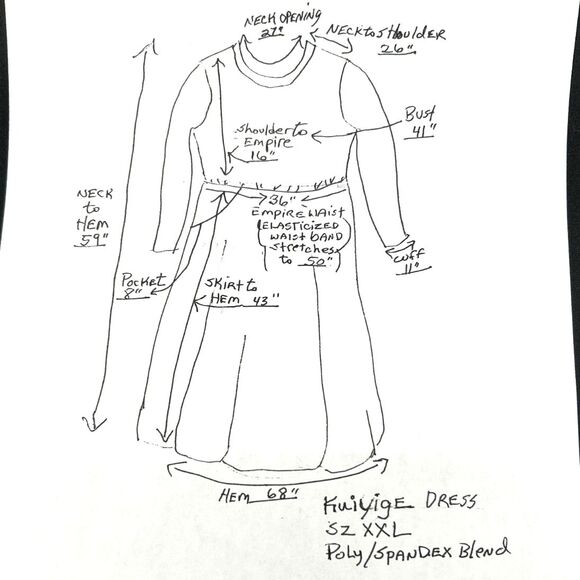 NECK OPENING
27"
NECK to SHOULDER
26"
BUST
41"
Shoulder to
EMPIRE
16"
NECK
to
HEM
59"
36"
EMPIRE WAIST
(ELASTICIZED
WAIST BAND
stretches
to 50")
CUFF
11"
POCKET
8"
SKIRT to
HEM 43"
HEM 68"
KuiYige DRESS
SZ XXL
Poly/SPANDEX Blend